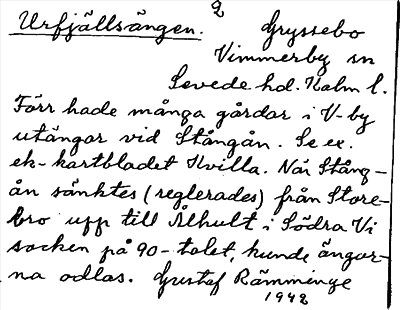 Urfjällsängen. 2 Gryssebo
Vimmerby sn
Sevede hd. Kalm l.
Förr hade många gårdar i V-by
utängar vid Stångån. Se ex.
ek-kartbladet Kvilla. När Stång-
ån sänktes (reglerades) från Store-
bro upp till Ålhult i Södra Vi
socken på 90-talet, kunde ängar-
na odlas. Gustaf Rämminge
1942